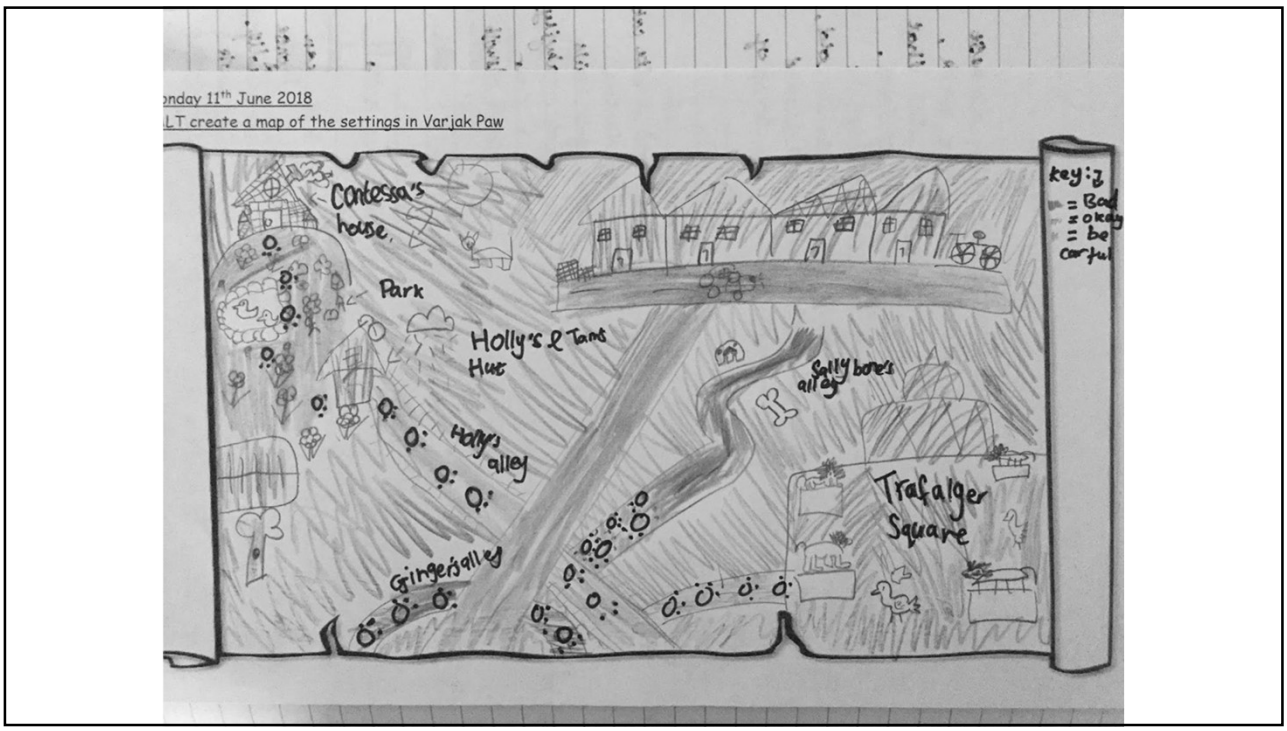 onday 11th June 2018
LT create a map of the settings in Varjak Paw
Contessa's
house.
Park
Holly's & Tams
Hut
Holly's
alley
Ginger's alley
Sally bone's
alley
Trafalger
Square
key:
= Bad
= okay
= be
carful